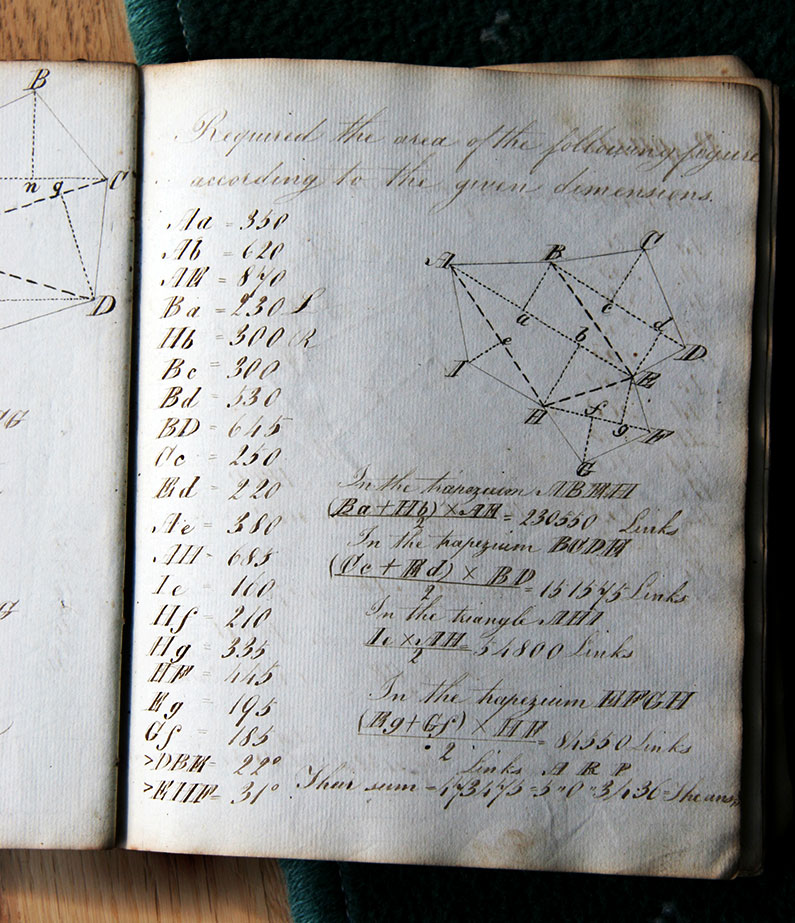 B
n
g
C
D
Required the area of the following figure
according to the given dimensions.
Aa = 350
Ab = 620
AE = 870
Ba = 230 L
Hb = 300 R
Bc = 300
Bd = 530
BD = 645
Cc = 250
Ed = 220
Ae = 380
AH = 685
Ie = 160
Hf = 210
Hg = 335
HF = 445
Eg = 195
Gf = 185
>DBE = 22°
>EHF = 31°
A B C
a c d
e b D
I E
H f g F
G
In the trapezium ABEH
(Ba + Hb) × AE
2
= 230550 Links
In the trapezium BCDE
(Cc + Ed) × BD
2
= 151575 Links
In the triangle AHI
Ie × AH
2
= 54800 Links
In the trapezium EFGH
(Eg + Gf) × HF
2
= 84550 Links
Links A R P
Thair sum = = 5 " 0 " = The ans